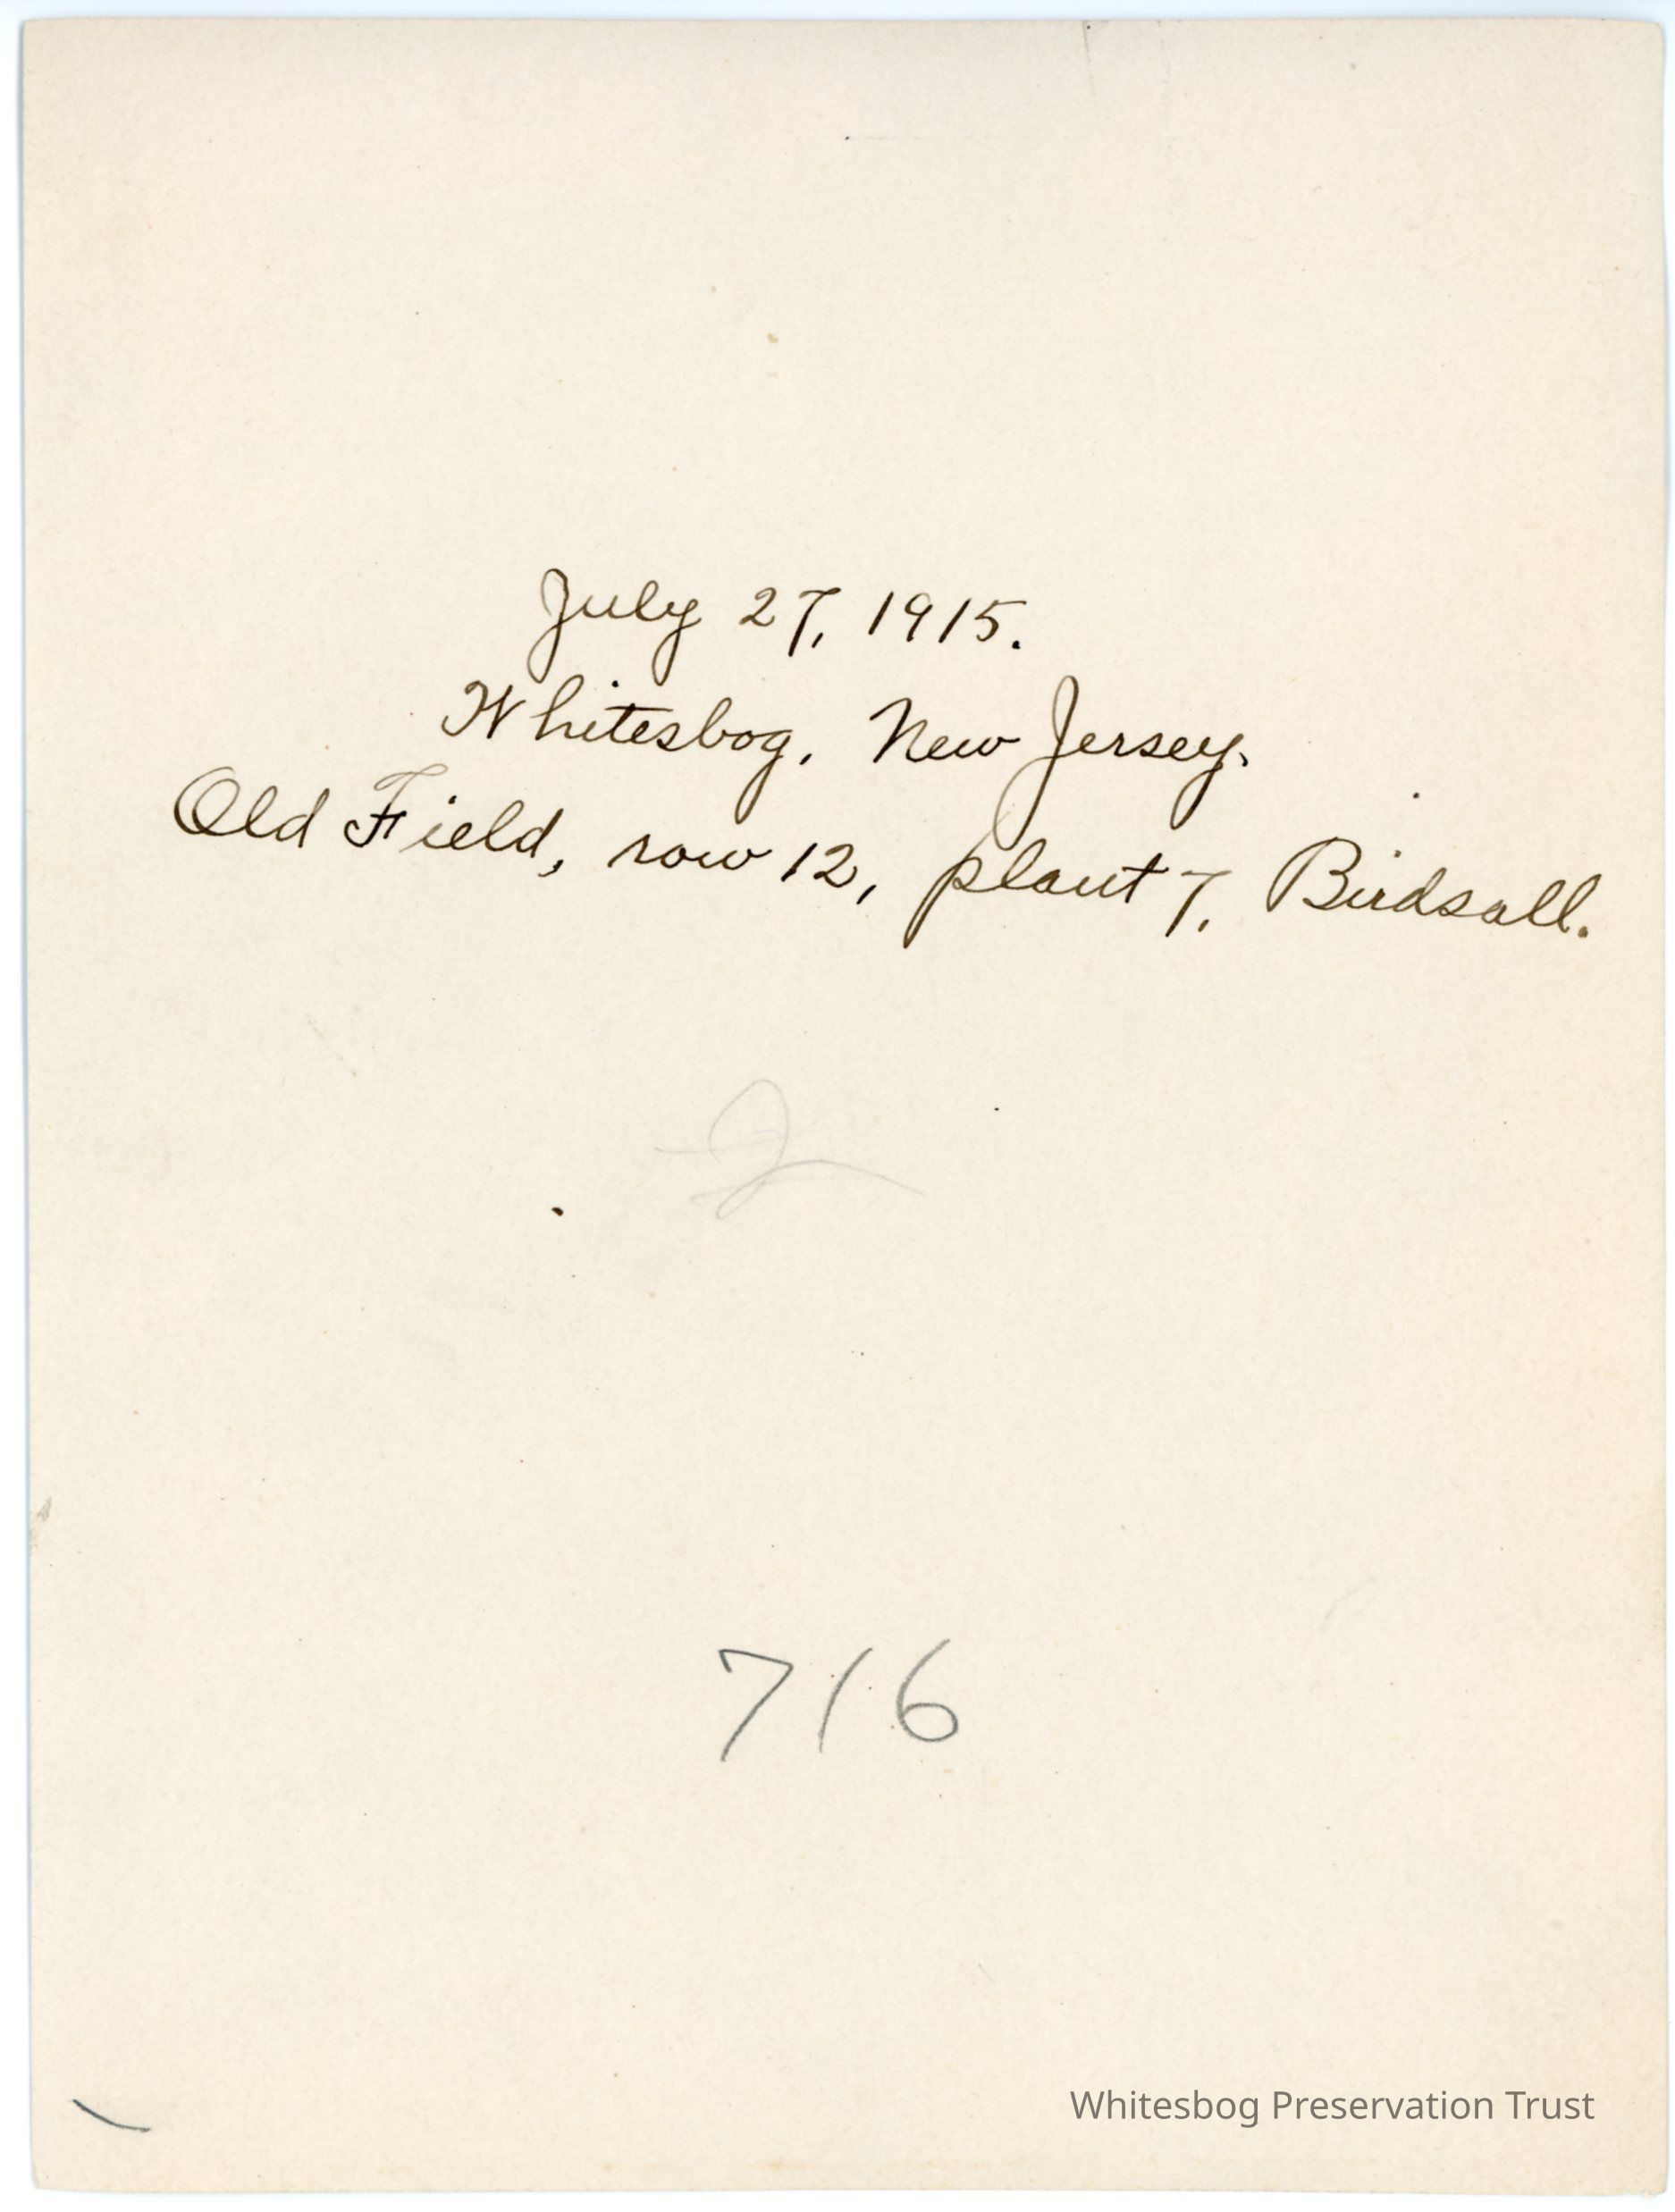 July 27, 1915.
Whitesbog, New Jersey.
Old Field, row 12, plant 7, Birdsall.
716
Whitesbog Preservation Trust